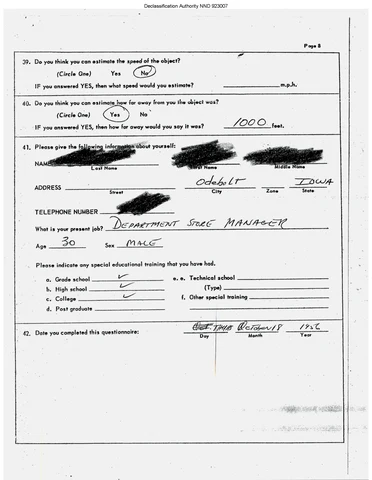 Declassification Authority NND 923007
Page 8
39. Do you think you can estimate the speed of the object?
(Circle One) Yes No
IF you answered YES, then what speed would you estimate? m.p.h.
40. Do you think you can estimate how far away from you the object was?
(Circle One) Yes No
IF you answered YES, then how far away would you say it was? 1000 feet.
41. Please give the following information about yourself:
NAME
Last Name First Name Middle Name
ADDRESS Odebolt IOWA
Street City Zone State
TELEPHONE NUMBER
What is your present job? DEPARTMENT STORE MANAGER
Age 30 Sex MALE
Please indicate any special educational training that you have had.
a. Grade school ✓ e. Technical school
b. High school ✓ (Type)
c. College ✓ f. Other special training
d. Post graduate
42. Date you completed this questionnaire: October 18 1956
Day Month Year